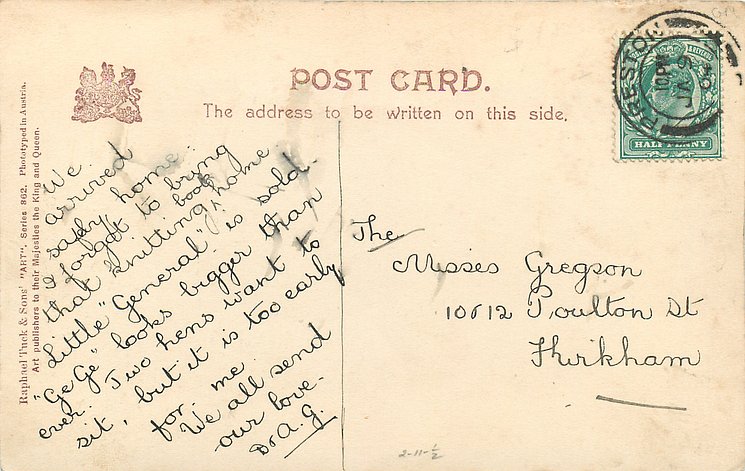 POST CARD.
The address to be written on this side.
Raphael Tuck & Sons' "ART". Series 862. Phototyped in Austria.
Art publishers to their Majesties the King and Queen.
PRESTON
HALF PENNY
We
arrived
safely home.
I forgot to bring
book
that knitting ^ home.
Little "General" is sold.
"Ge Ge" looks bigger than
ever. Two hens want to
sit, but it is too early
for me.
We all send
our love.
A. G.
The
Misses Gregson
10 & 12 Poulton St
Kirkham
2-11-½